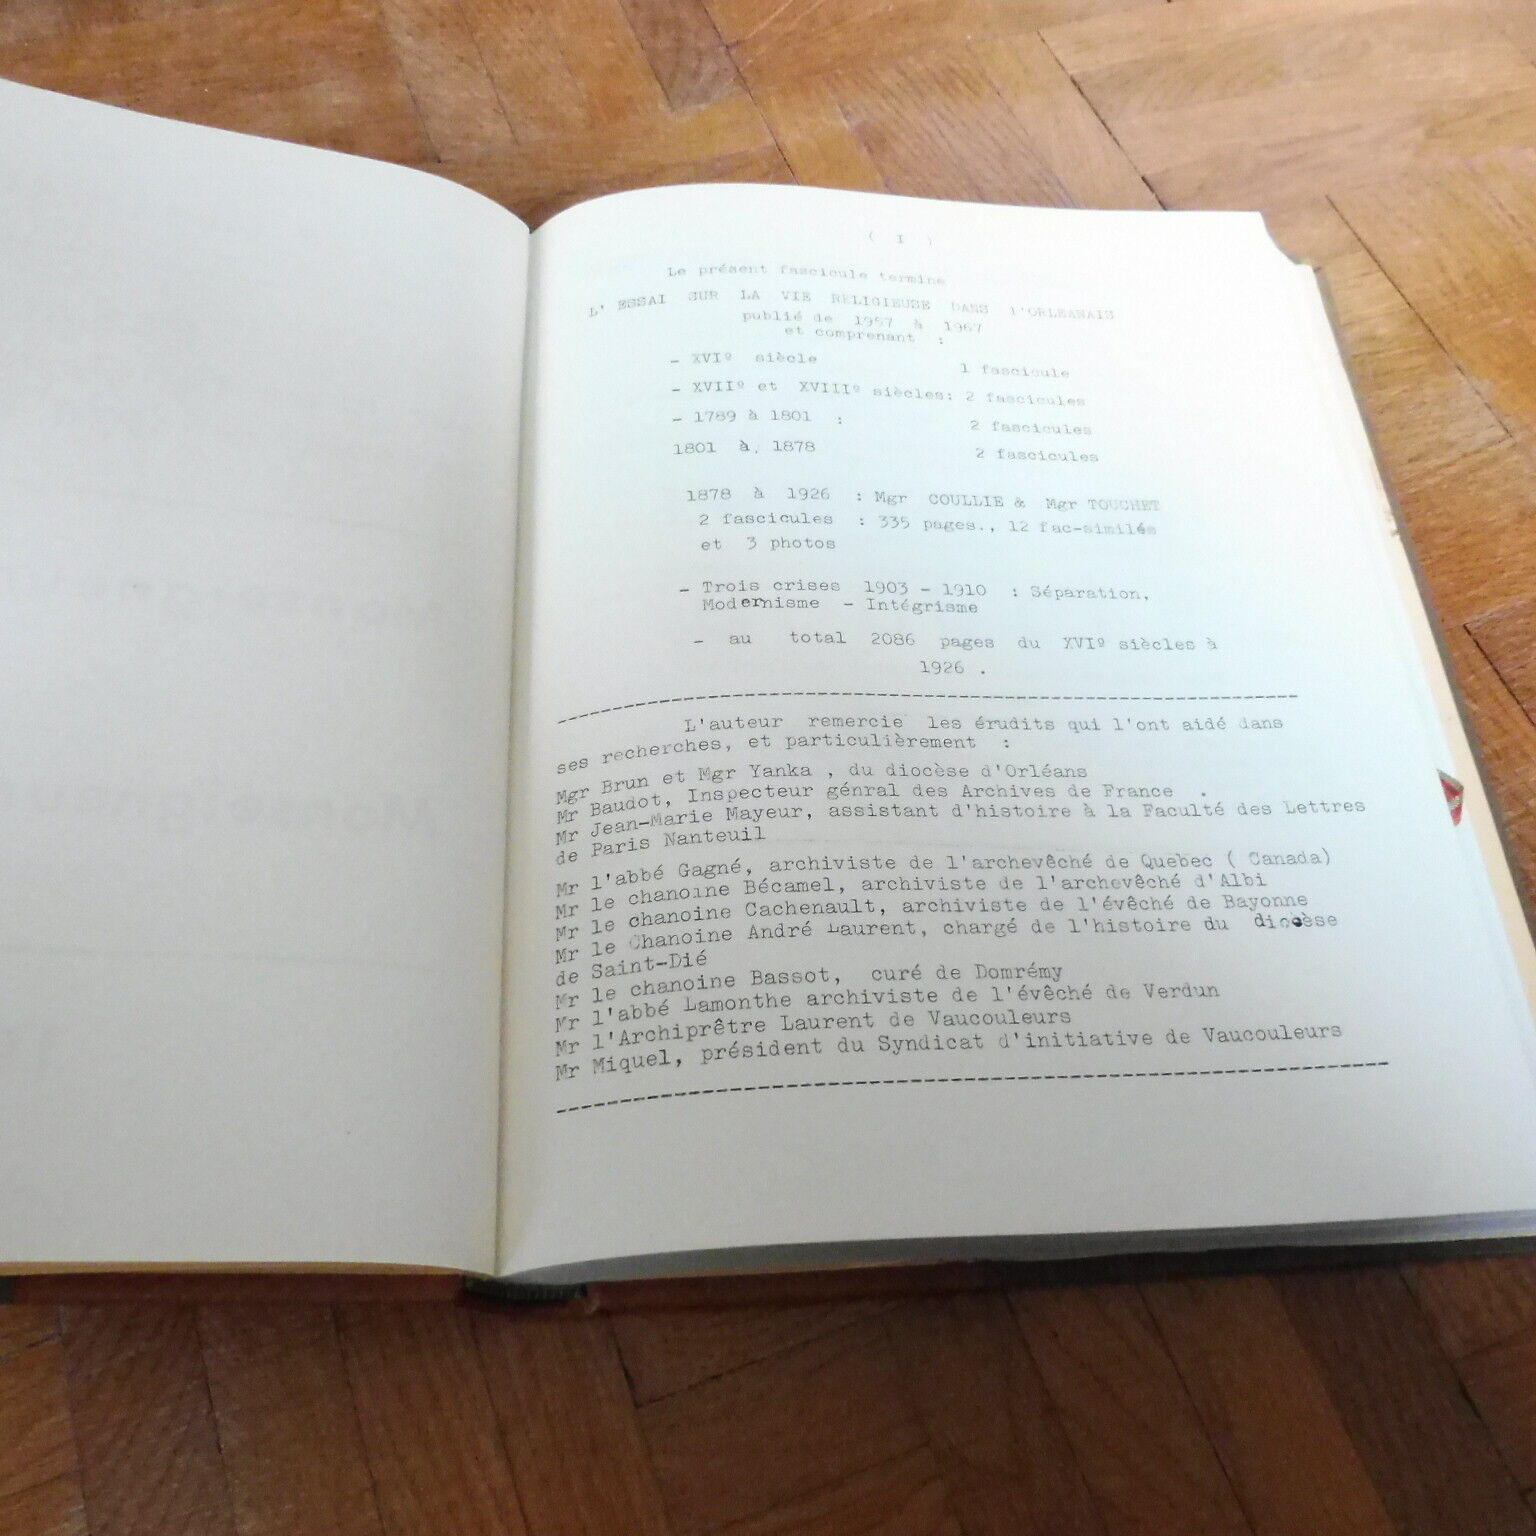 ( I )
Le présent fascicule termine
L' ESSAI SUR LA VIE RELIGIEUSE DANS l'ORLEANAIS
publié de 1957 à 1967
et comprenant :
- XVIº siècle 1 fascicule
- XVIIº et XVIIIº siècles: 2 fascicules
- 1789 à 1801 : 2 fascicules
1801 à, 1878 2 fascicules
1878 à 1926 : Mgr COULLIE & Mgr TOUCHET
2 fascicules : 335 pages., 12 fac-similés
et 3 photos
- Trois crises 1903 - 1910 : Séparation,
Modernisme - Intégrisme
- au total 2086 pages du XVIº siècles à
1926 .
L'auteur remercie les érudits qui l'ont aidé dans
ses recherches, et particulièrement :
Mgr Brun et Mgr Yanka , du diocèse d'Orléans
Mr Baudot, Inspecteur génral des Archives de France .
Mr Jean-Marie Mayeur, assistant d'histoire à la Faculté des Lettres
de Paris Nanteuil
Mr l'abbé Gagné, archiviste de l'archevêché de Quebec ( Canada)
Mr le chanoine Bécamel, archiviste de l'archevêché d'Albi
Mr le chanoine Cachenault, archiviste de l'évêché de Bayonne
Mr le Chanoine André Laurent, chargé de l'histoire du diocèse
de Saint-Dié
Mr le chanoine Bassot, curé de Domrémy
Mr l'abbé Lamonthe archiviste de l'évêché de Verdun
Mr l'Archiprêtre Laurent de Vaucouleurs
Mr Miquel, président du Syndicat d'initiative de Vaucouleurs